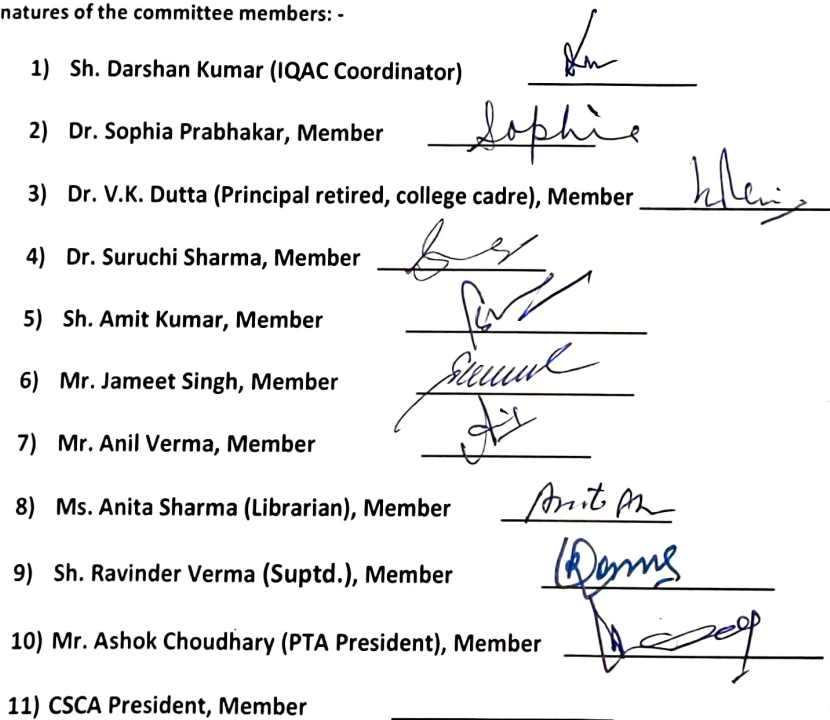 natures of the committee members: -
1) Sh. Darshan Kumar (IQAC Coordinator)
2) Dr. Sophia Prabhakar, Member Sophia
3) Dr. V.K. Dutta (Principal retired, college cadre), Member
4) Dr. Suruchi Sharma, Member
5) Sh. Amit Kumar, Member
6) Mr. Jameet Singh, Member
7) Mr. Anil Verma, Member
8) Ms. Anita Sharma (Librarian), Member
9) Sh. Ravinder Verma (Suptd.), Member
10) Mr. Ashok Choudhary (PTA President), Member
11) CSCA President, Member